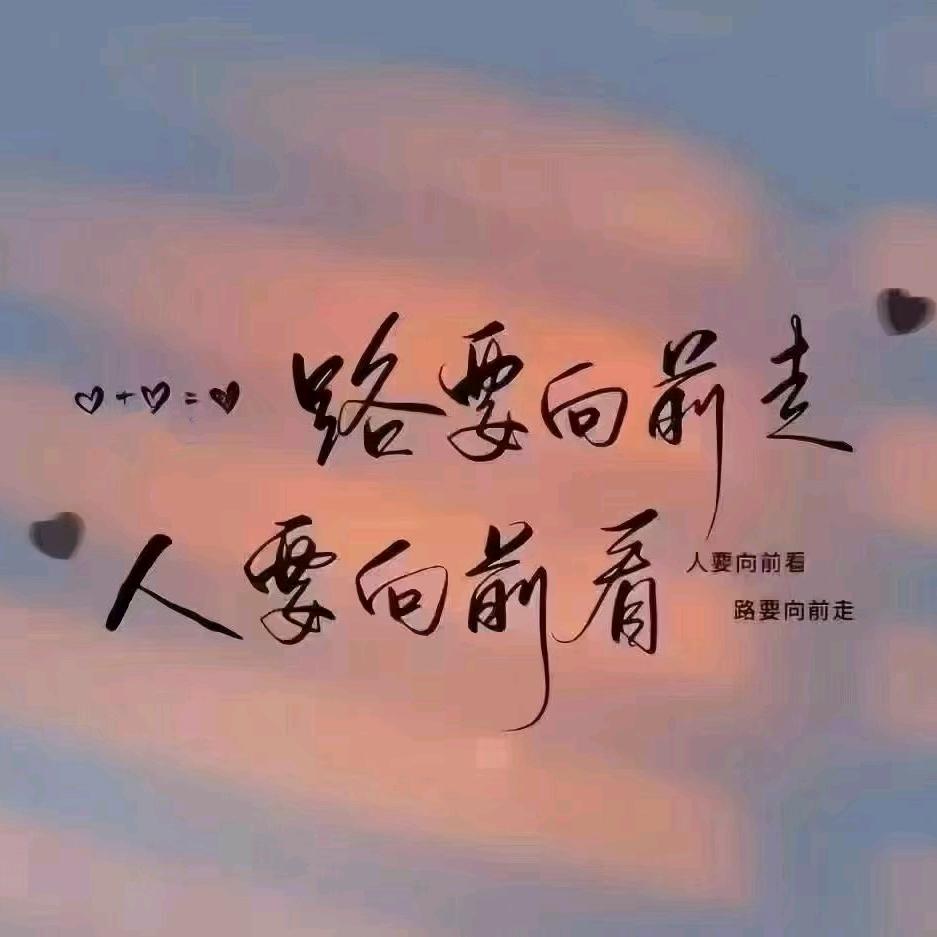 ♡+♡=♡ 路要向前走
人要向前看
人要向前看
路要向前走